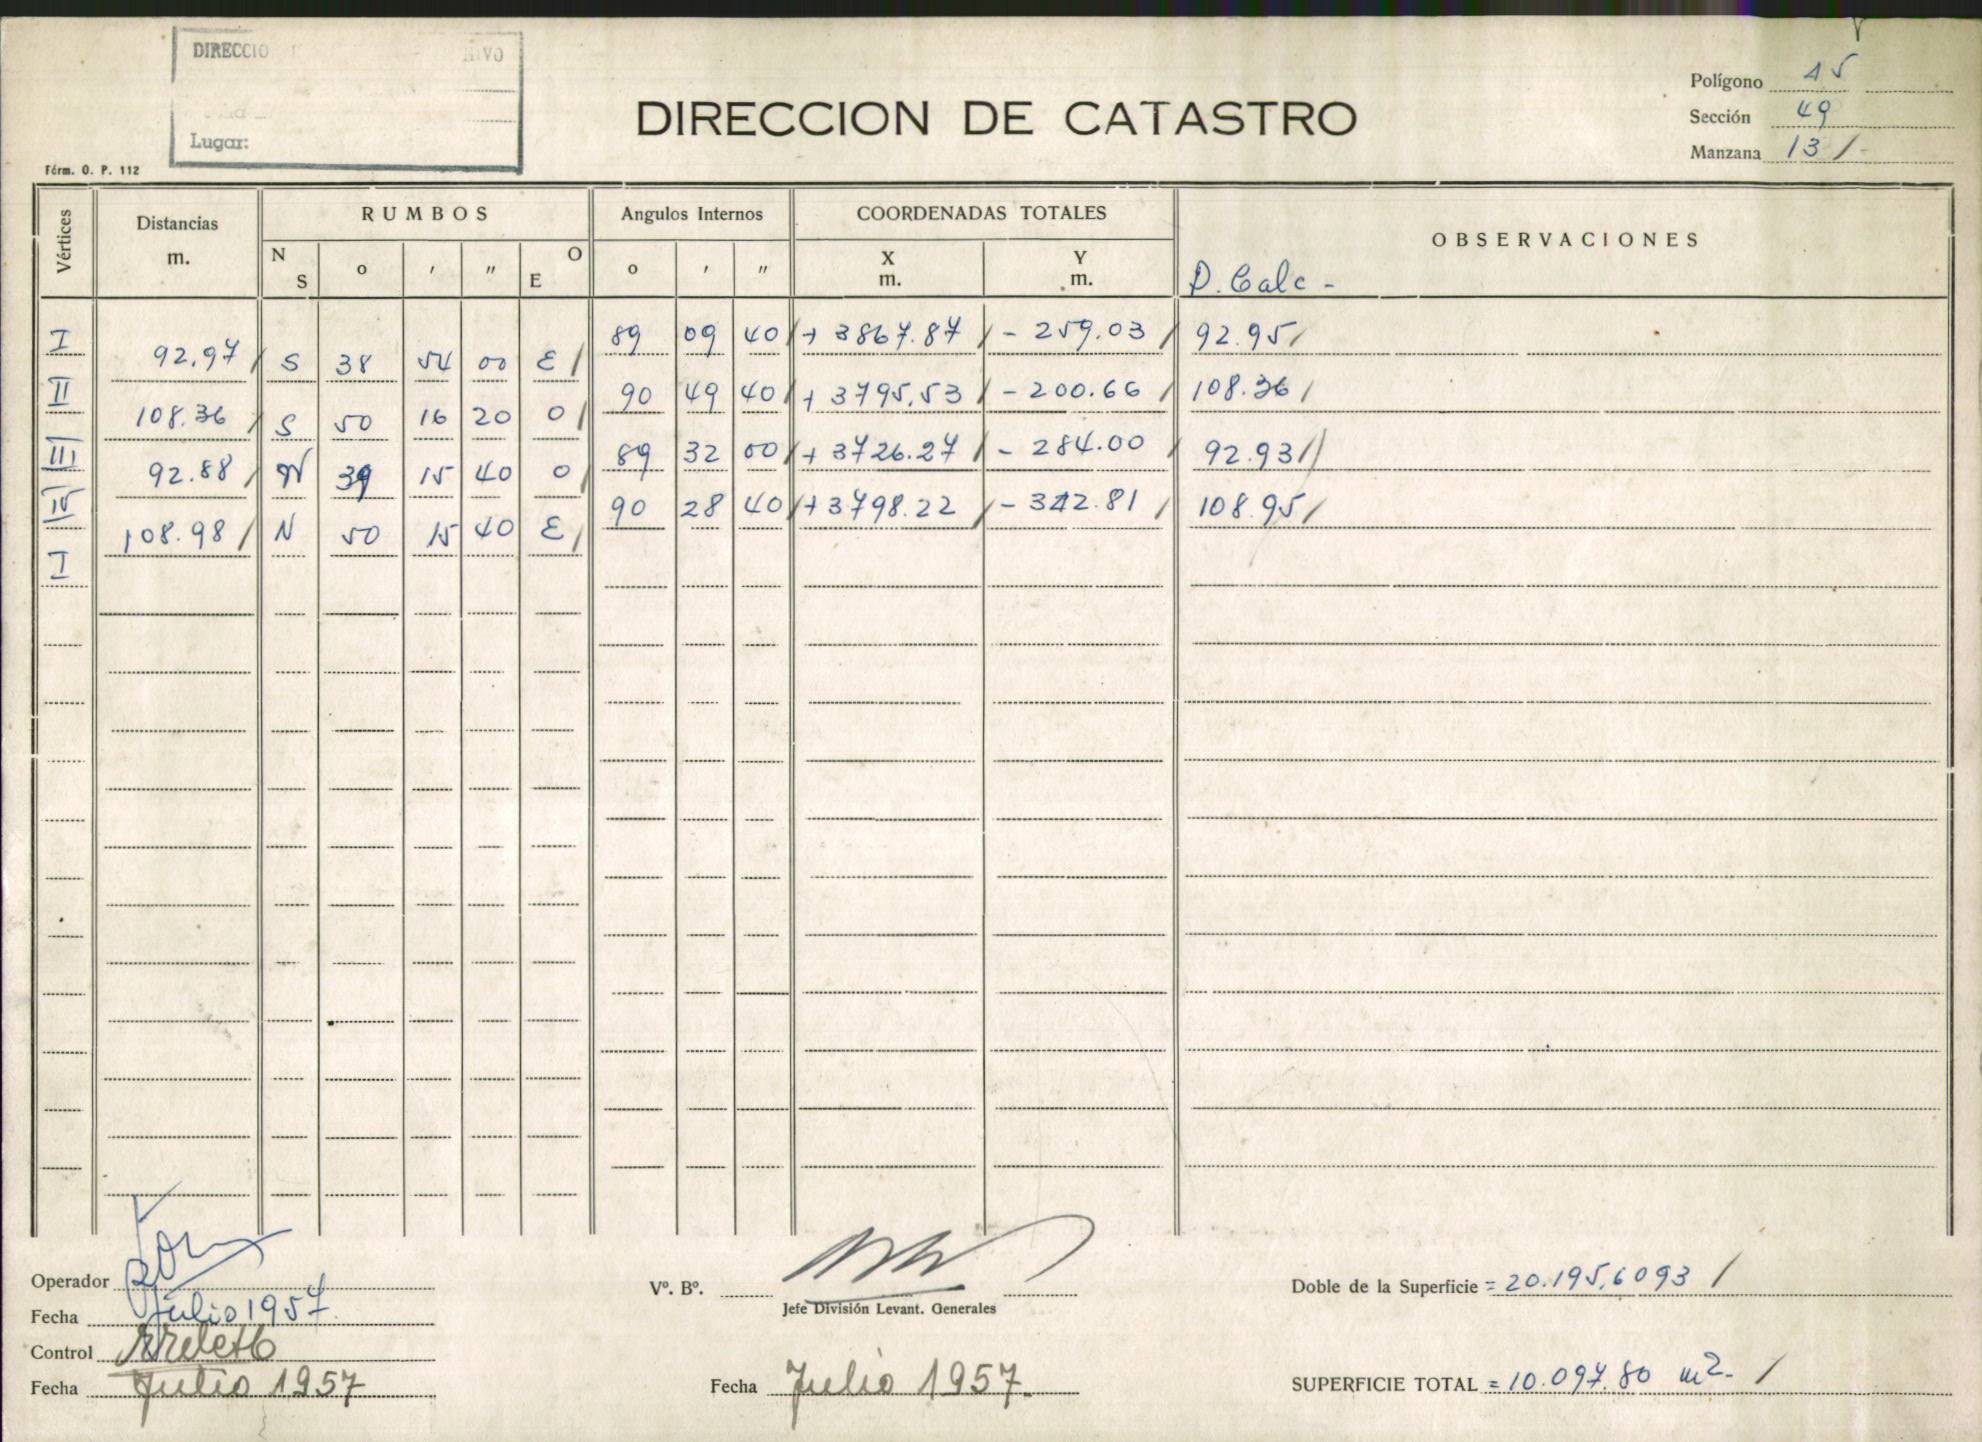 DIRECCIO HIVO
Lugar:
Polígono 15
Sección 49
Manzana 13 /
DIRECCION DE CATASTRO
Fórm. O. P. 112
Vértices Distancias m. RUMBOS Angulos Internos COORDENADAS TOTALES OBSERVACIONES
N S o ′ ″ O E o ′ ″ X m. Y m. D. Calc -
I 89 09 40 / + 3867.87 / - 259.03 / 92.95 /
92.97 / S 38 54 00 E /
II 90 49 40 / + 3795.53 / - 200.66 / 108.36 /
108.36 / S 50 16 20 O /
III 89 32 00 / + 3726.27 / - 284.00 / 92.93 //
92.88 / N 39 15 40 O /
IV 90 28 40 / + 3798.22 / - 342.81 / 108.95 /
108.98 / N 50 15 40 E /
I
Operador
Fecha Julio 1957.
Control
Fecha Julio 1957
Vº. Bº.
Jefe División Levant. Generales
Fecha Julio 1957.
Doble de la Superficie = 20.195,6093 /
SUPERFICIE TOTAL = 10.097.80 m2. /